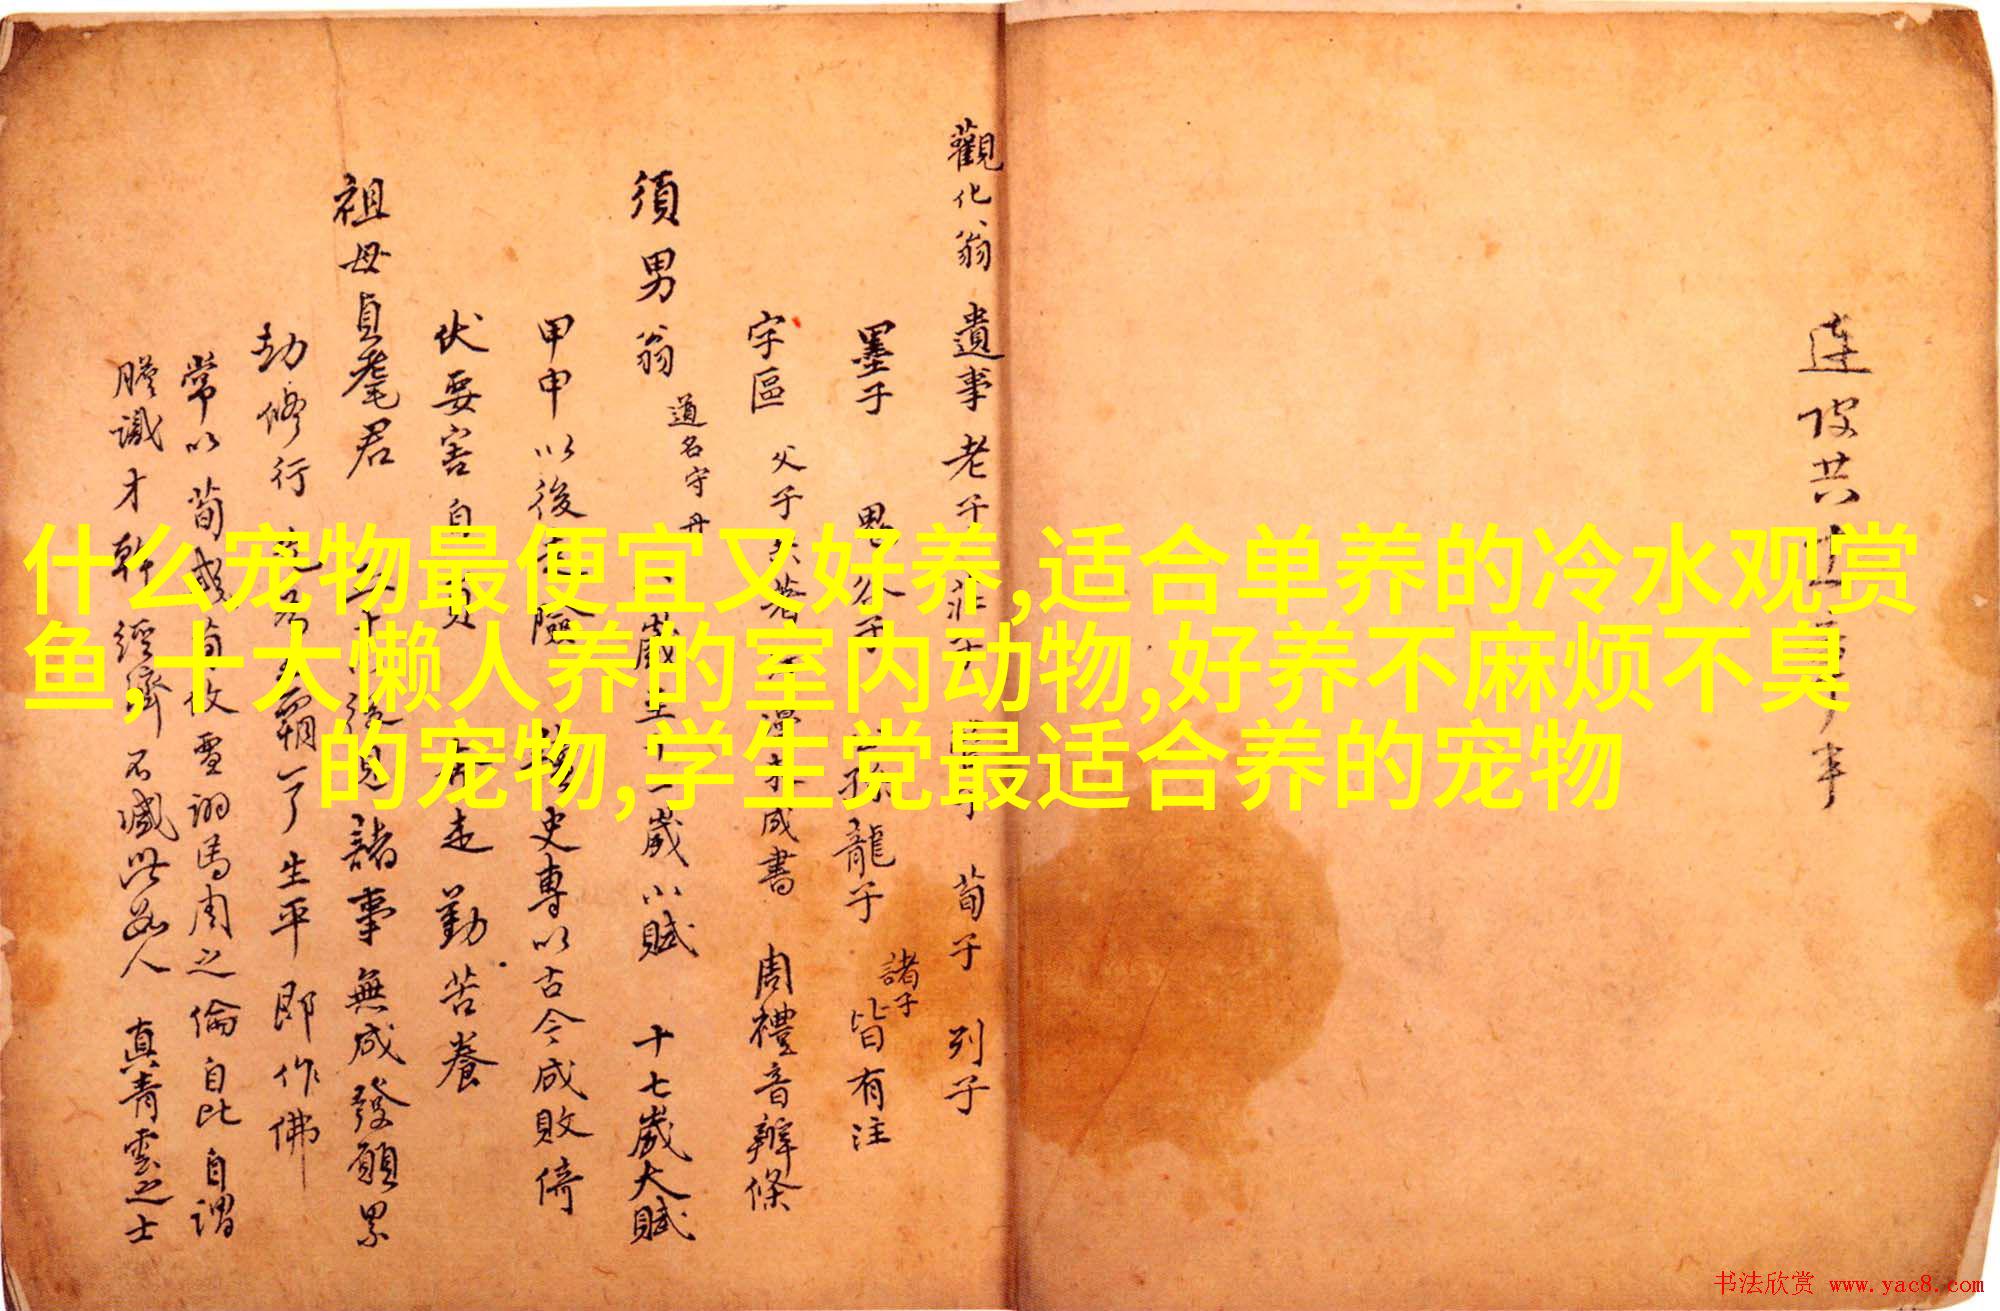 什么宠物最便宜又好养,适合单养的冷水观赏
鱼,十大懒人养的室内动物,好养不麻烦不臭
的宠物,学生党最适合养的宠物
觀化翁 遺事 老子 莊子 荀子 列子
墨子 鬼谷子 孫龍子 諸子 皆有注
字區 父子 成書 周禮音辨條
須男翁 道名守丹 歲 十一歲小賦 十七歲大賦
甲申以後 險 史專以古今成敗倚
伏要害自負 走勤苦養
祖母貞耄君 後見諸事無成發願累
劫修行 霸一了生平即作佛
常以荀 馬周之倫自比自謂
膽識才幹經濟不減此 人 真青雲之士
书法欣赏 www.yac8.com